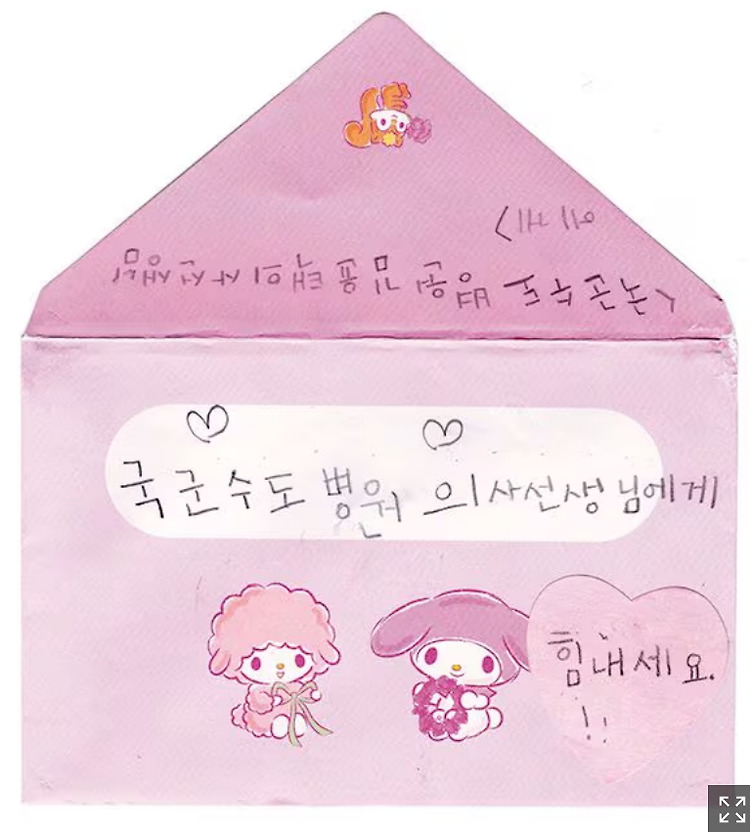 국군수도 병원 의사선생님
에게
국군수도병원 의사선생님에게
힘내세요.
!!